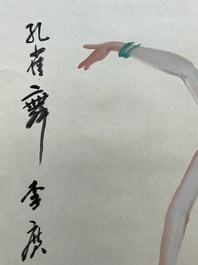 孔雀舞 李广